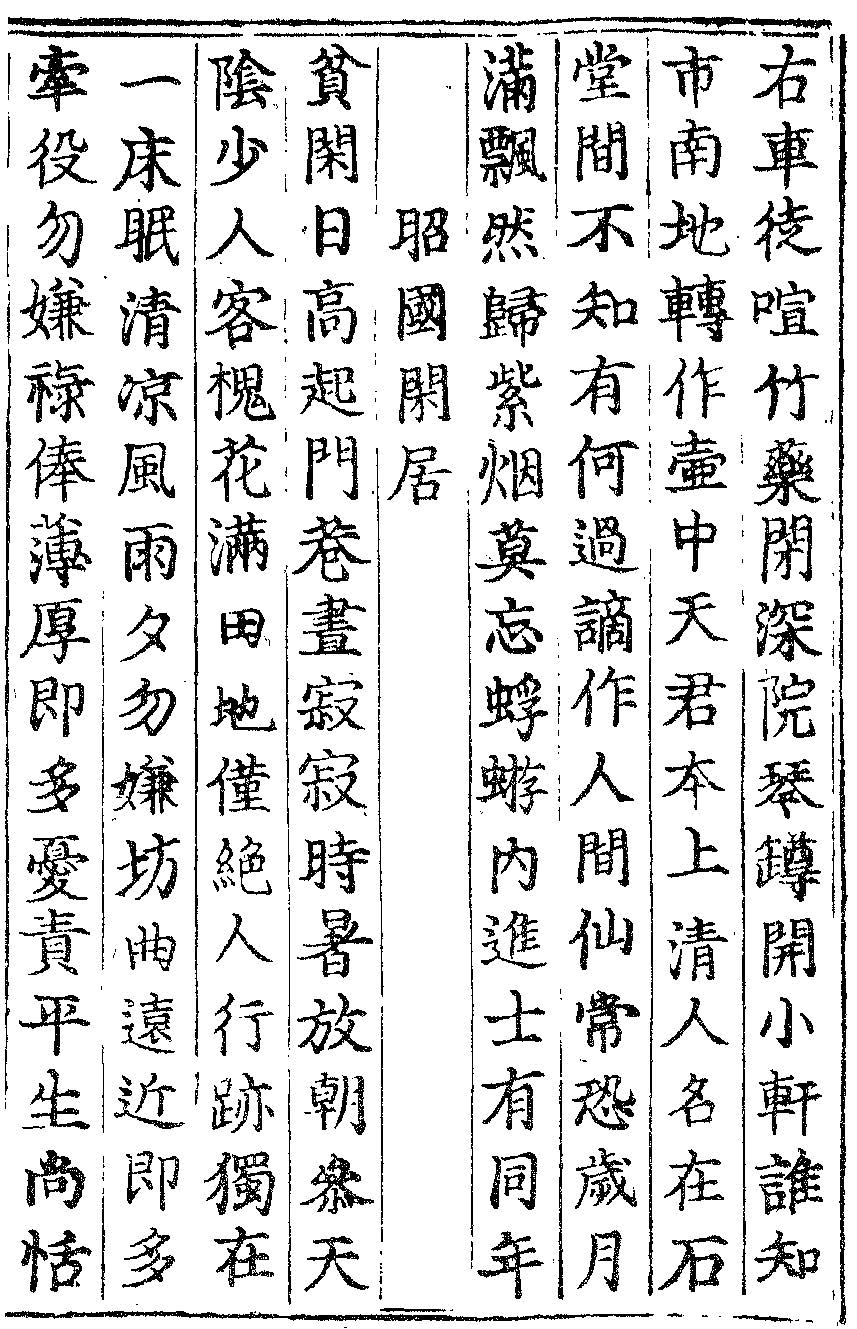 右車徒喧竹藥閉深院琴罇開小軒誰知
市南地轉作壷中天君本上清人名在石
堂間不知有何過謫作人間仙常恐歲月
滿飄然歸紫烟莫忘蜉蝣內進士有同年
昭國閑居
貧閑日高起門巷晝寂寂時暑放朝叅天
陰少人客槐花滿田地僅絕人行跡獨在
一床眠清凉風雨夕勿嫌坊曲遠近即多
牽役勿嫌祿俸薄厚即多憂責平生尚恬